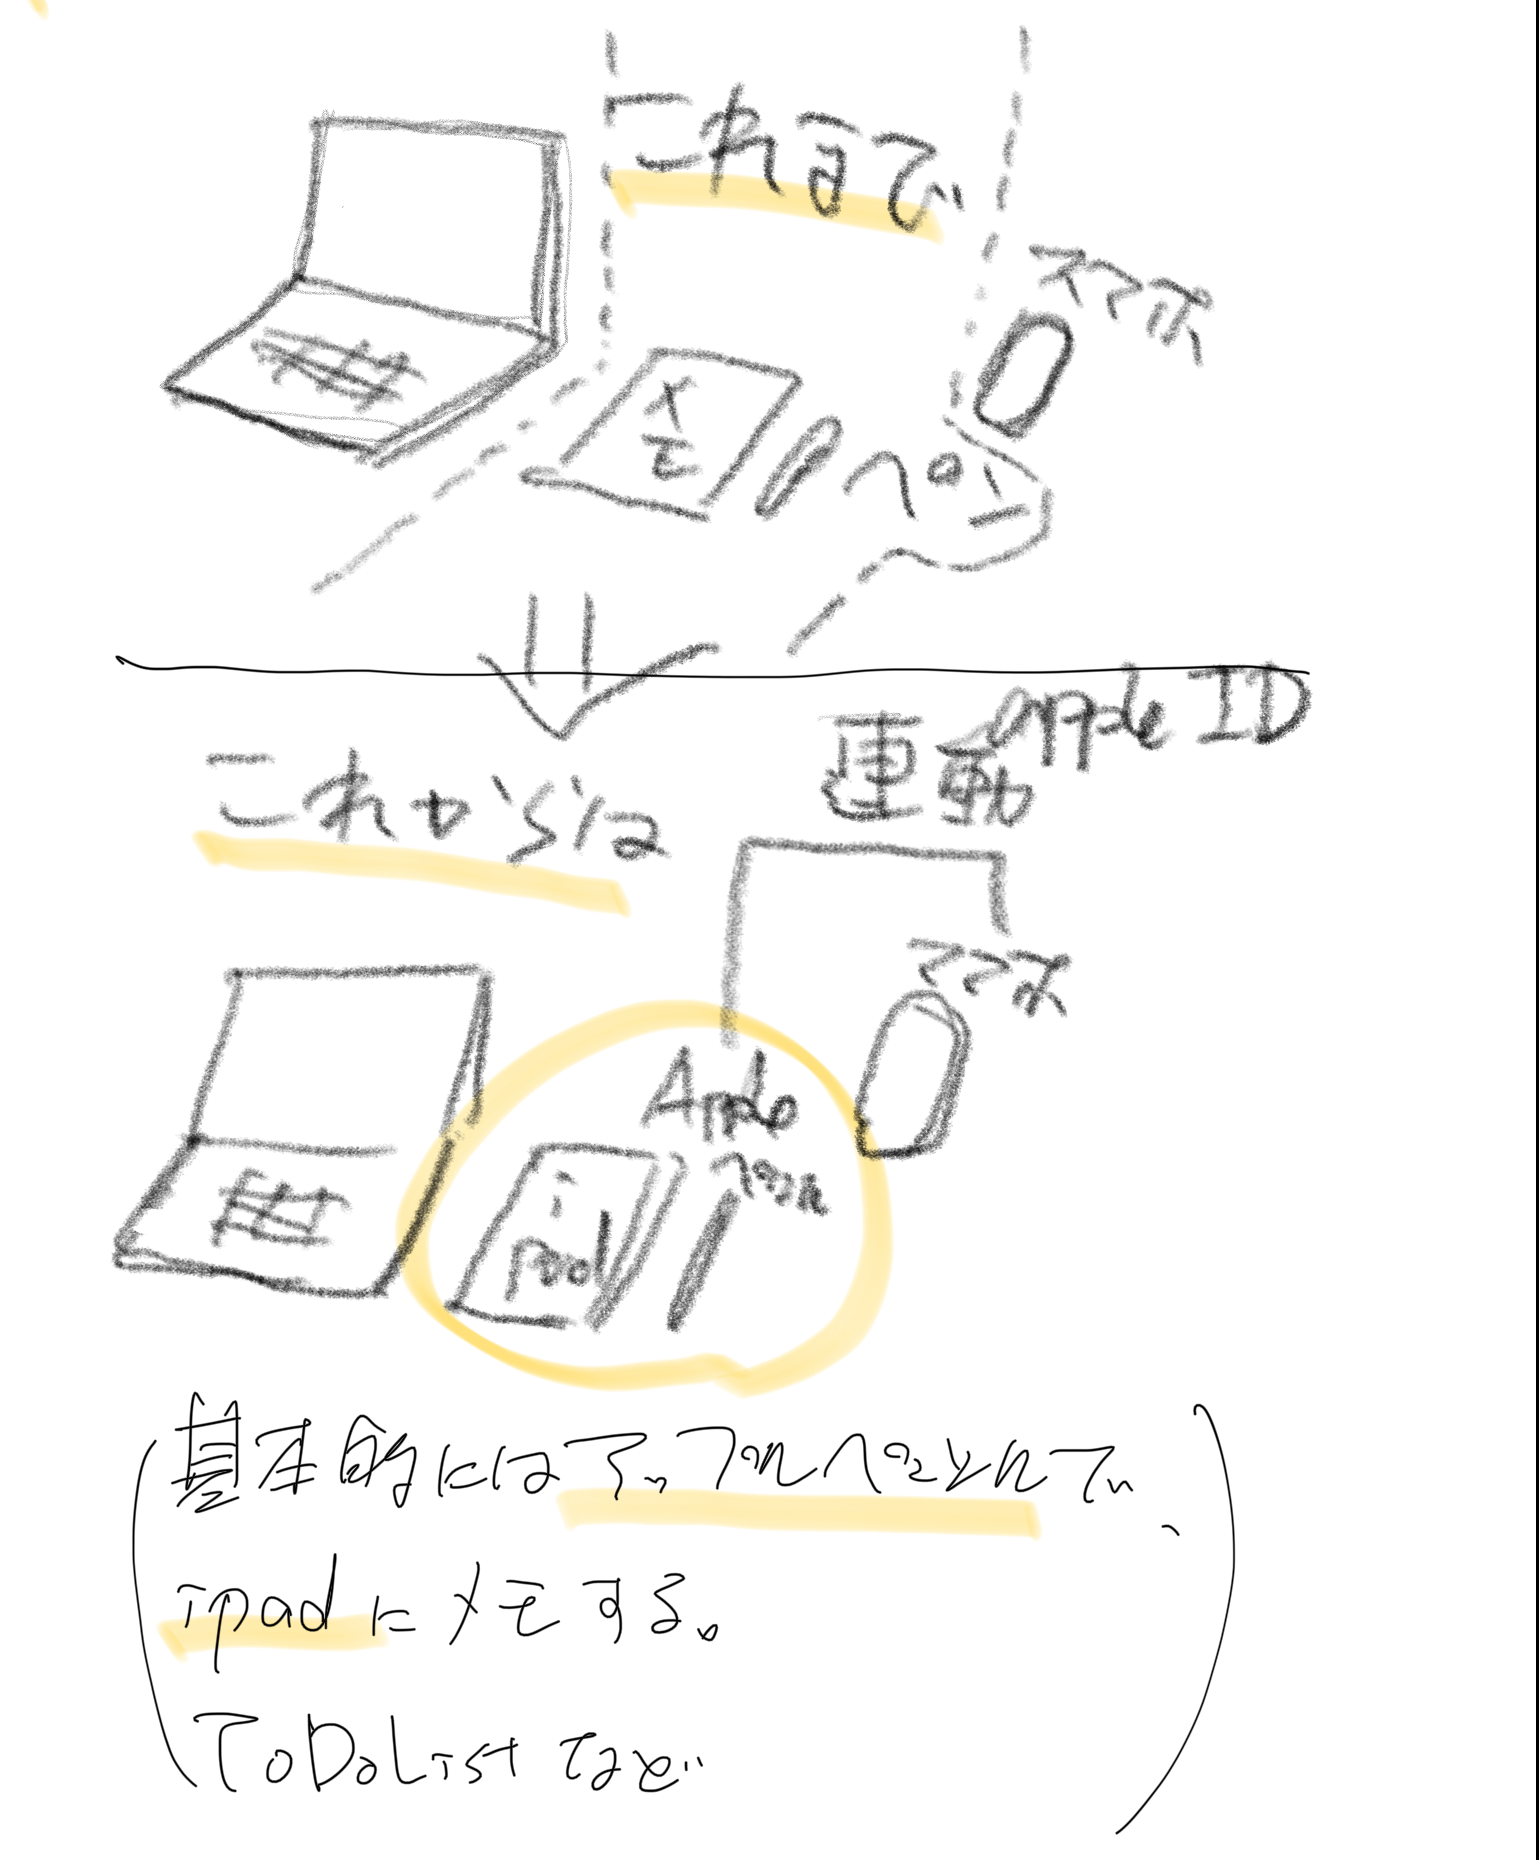 これまで
スマホ
メモ
ペン
これからは
連動
apple ID
スマホ
Apple
ipad
基本的にはアップルペンシルで、
ipadにメモする。
ToDoListなど